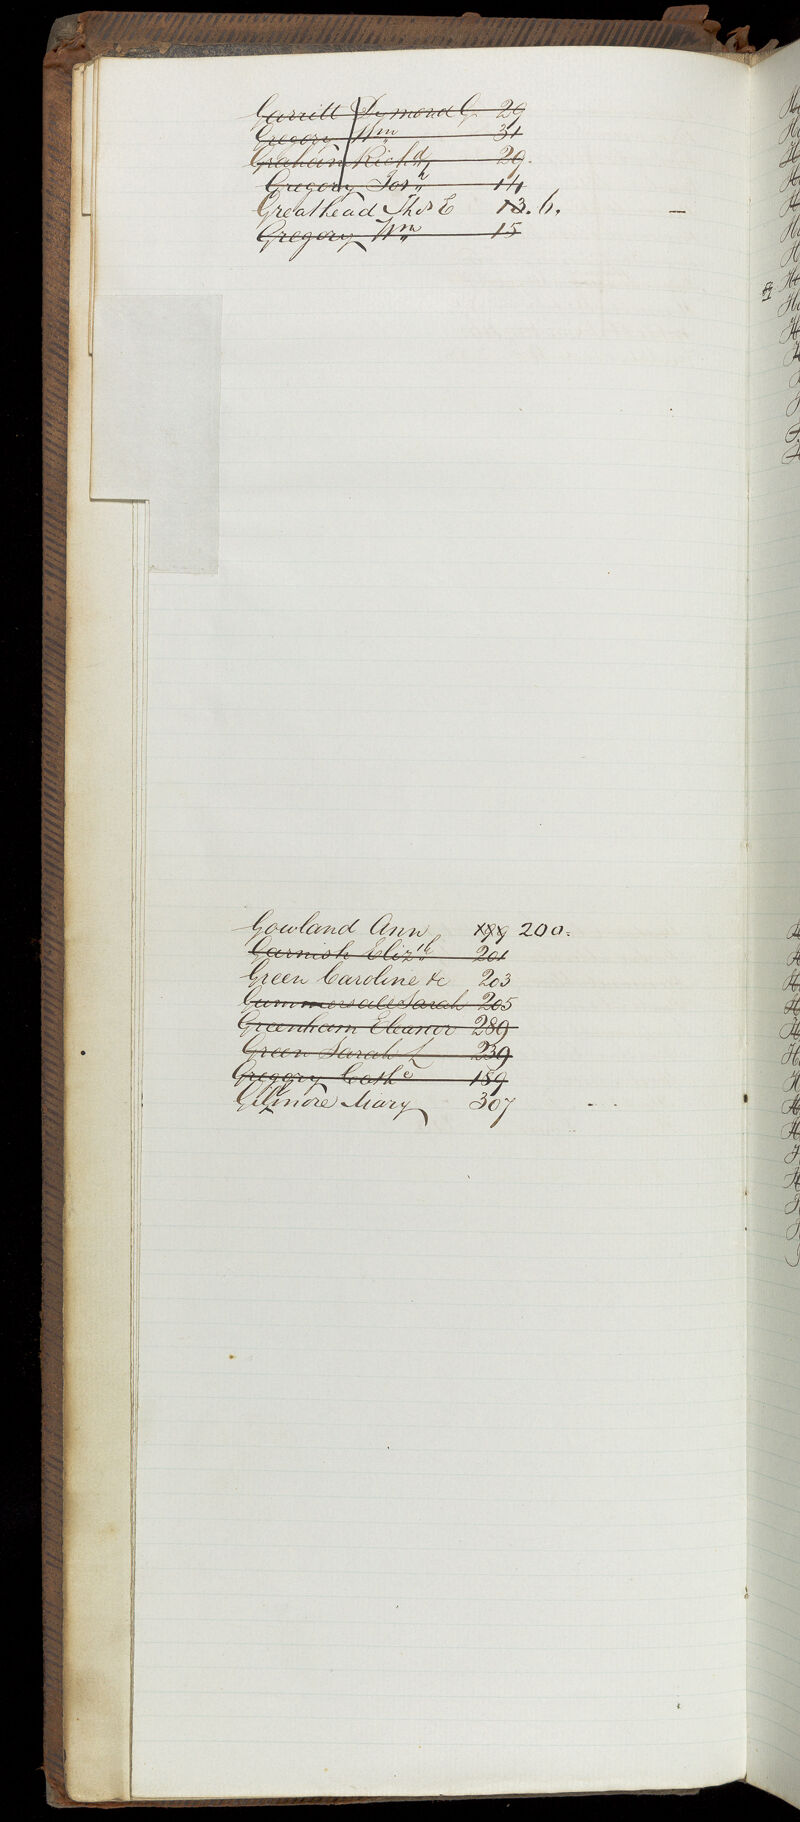 Garrett Symond G 29
Gregory Wm 31
Graham Richd 29.
Gregory Josh 14
Greathead Thos E 13. 6. —
Gregory Wm 15
Gowland Ann 199 200.
Garnish Elizth 201
Green Caroline &c 203
Gummersall Sarah 205
Greenham Eleanor 289
Green Sarah L 239
Gregory Cathe 189
Gilmore Mary 307